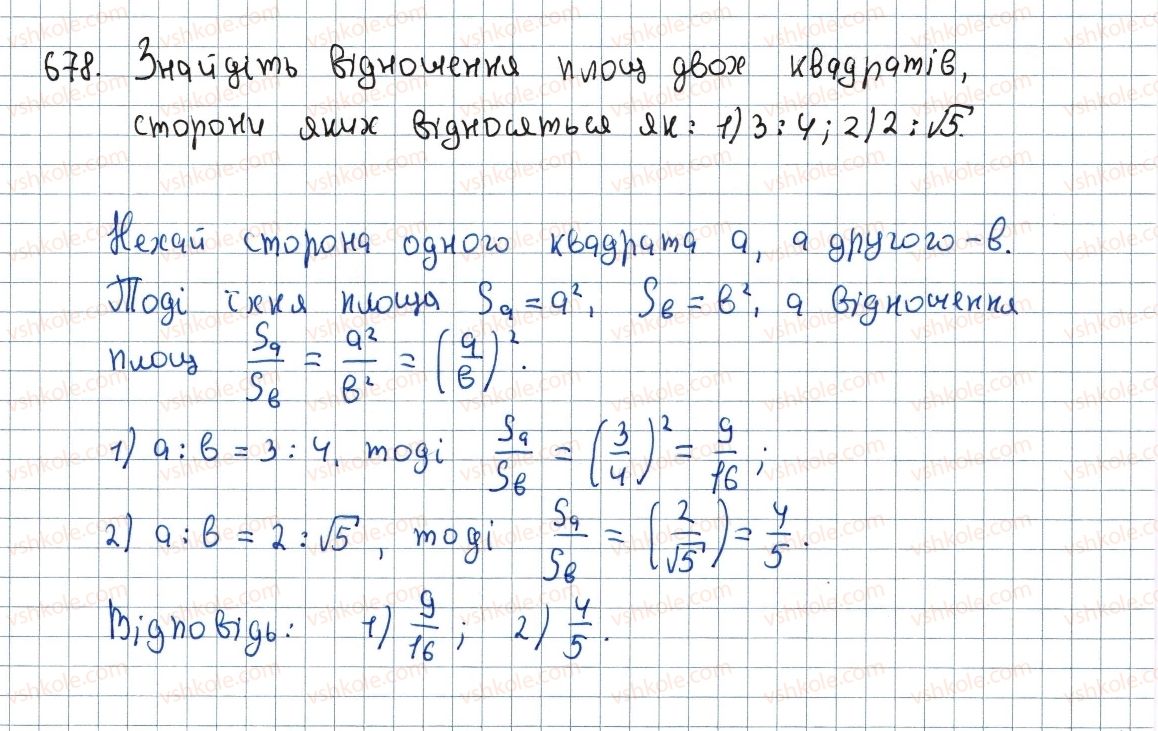 678. Знайдіть відношення площ двох квадратів,
сторони яких відносяться як: 1) 3 : 4; 2) 2 : √5.
Нехай сторона одного квадрата a, а другого – b.
Тоді їхня площа Sa = a², Sb = b², а відношення
площ Sa/Sb = a²/b² = (a/b)².
1) a : b = 3 : 4, тоді Sa/Sb = (3/4)² = 9/16;
2) a : b = 2 : √5, тоді Sa/Sb = (2/√5) = 4/5.
Відповідь: 1) 9/16; 2) 4/5.